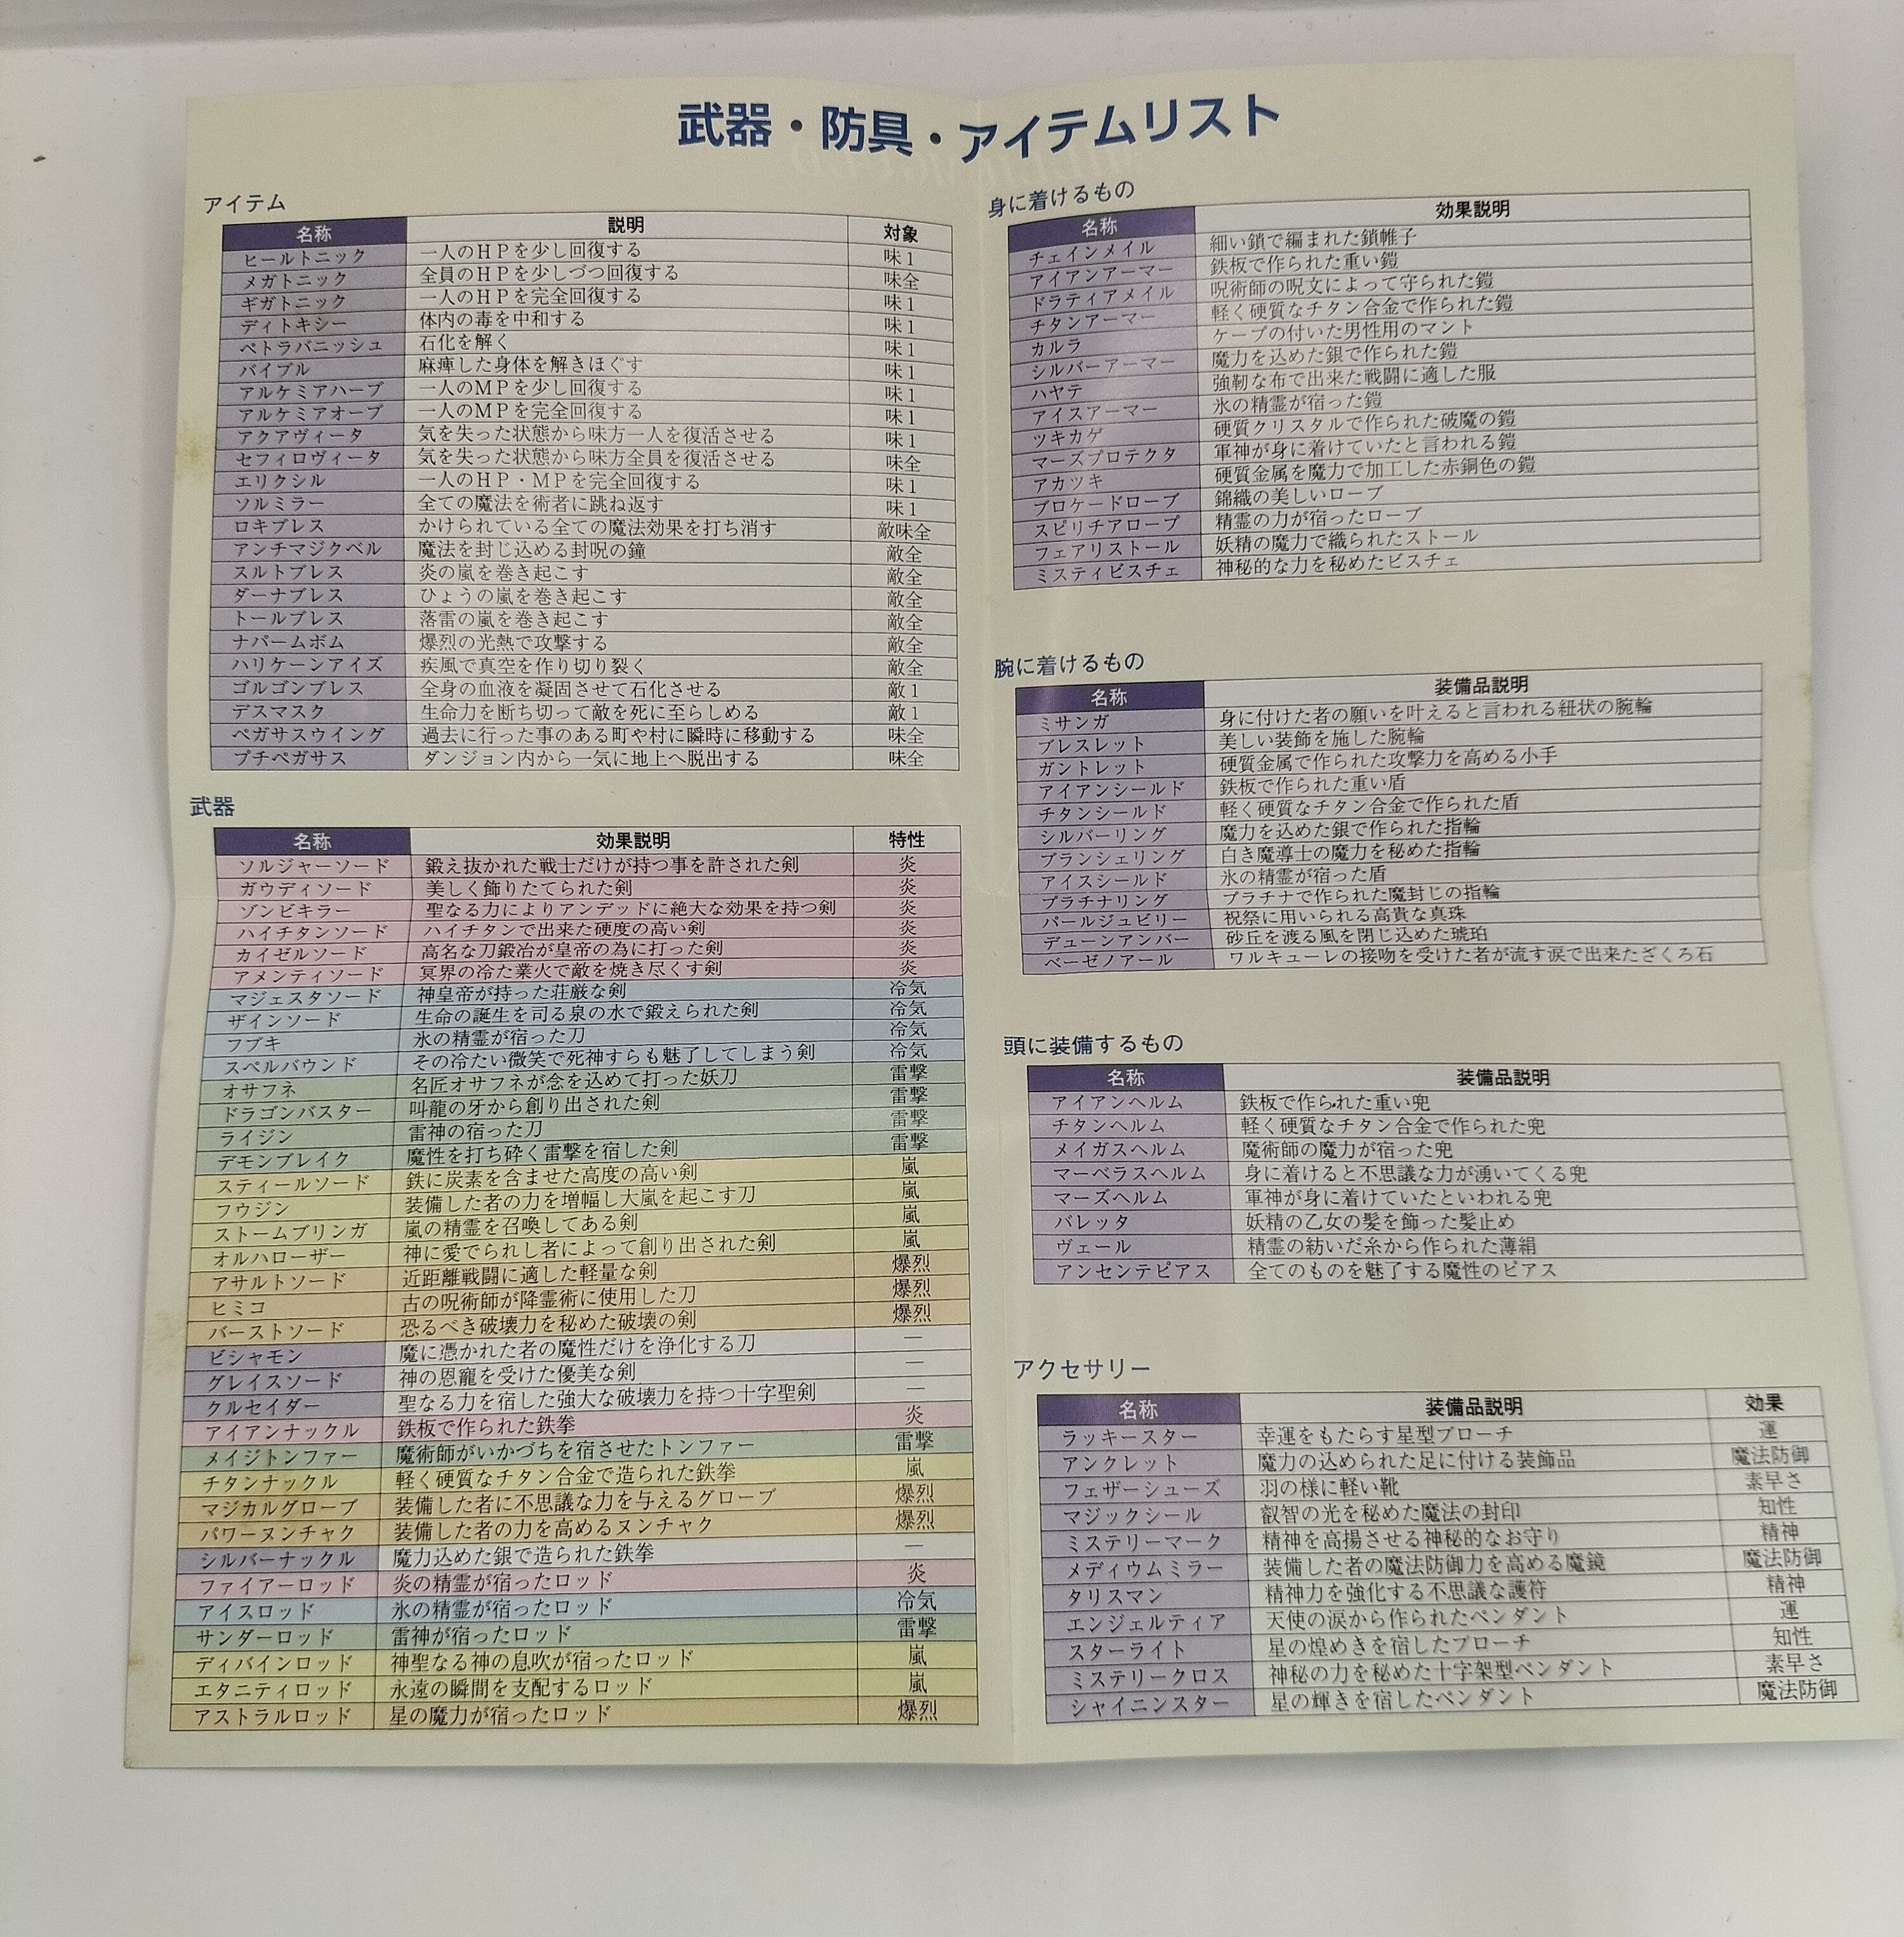 武器・防具・アイテムリスト
アイテム
名称 説明 対象
ヒールトニック 一人のＨＰを少し回復する 味１
メガトニック 全員のＨＰを少しづつ回復する 味全
ギガトニック 一人のＨＰを完全回復する 味１
ディトキシー 体内の毒を中和する 味１
ペトラバニッシュ 石化を解く 味１
バイブル 麻痺した身体を解きほぐす 味１
アルケミアハーブ 一人のＭＰを少し回復する 味１
アルケミアオーブ 一人のＭＰを完全回復する 味１
アクアヴィータ 気を失った状態から味方一人を復活させる 味１
セフィロヴィータ 気を失った状態から味方全員を復活させる 味全
エリクシル 一人のＨＰ・ＭＰを完全回復する 味１
ソルミラー 全ての魔法を術者に跳ね返す 味１
ロキブレス かけられている全ての魔法効果を打ち消す 敵味全
アンチマジクベル 魔法を封じ込める封呪の鐘 敵全
スルトブレス 炎の嵐を巻き起こす 敵全
ダーナブレス ひょうの嵐を巻き起こす 敵全
トールブレス 落雷の嵐を巻き起こす 敵全
ナパームボム 爆烈の光熱で攻撃する 敵全
ハリケーンアイズ 疾風で真空を作り切り裂く 敵全
ゴルゴンブレス 全身の血液を凝固させて石化させる 敵１
デスマスク 生命力を断ち切って敵を死に至らしめる 敵１
ペガサスウイング 過去に行った事のある町や村に瞬時に移動する 味全
プチペガサス ダンジョン内から一気に地上へ脱出する 味全
武器
名称 効果説明 特性
ソルジャーソード 鍛え抜かれた戦士だけが持つ事を許された剣 炎
ガウディソード 美しく飾りたてられた剣 炎
ゾンビキラー 聖なる力によりアンデッドに絶大な効果を持つ剣 炎
ハイチタンソード ハイチタンで出来た硬度の高い剣 炎
カイゼルソード 高名な刀鍛冶が皇帝の為に打った剣 炎
アメンティソード 冥界の冷た業火で敵を焼き尽くす剣 炎
マジェスタソード 神皇帝が持った荘厳な剣 冷気
ザインソード 生命の誕生を司る泉の水で鍛えられた剣 冷気
フブキ 氷の精霊が宿った刀 冷気
スペルバウンド その冷たい微笑で死神すらも魅了してしまう剣 冷気
オサフネ 名匠オサフネが念を込めて打った妖刀 雷撃
ドラゴンバスター 叫龍の牙から創り出された剣 雷撃
ライジン 雷神の宿った刀 雷撃
デモンブレイク 魔性を打ち砕く雷撃を宿した剣 雷撃
スティールソード 鉄に炭素を含ませた高度の高い剣 嵐
フウジン 装備した者の力を増幅し大嵐を起こす刀 嵐
ストームブリンガ 嵐の精霊を召喚してある剣 嵐
オルハローザー 神に愛でられし者によって創り出された剣 嵐
アサルトソード 近距離戦闘に適した軽量な剣 爆烈
ヒミコ 古の呪術師が降霊術に使用した刀 爆烈
バーストソード 恐るべき破壊力を秘めた破壊の剣 爆烈
ビシャモン 魔に憑かれた者の魔性だけを浄化する刀 ―
グレイスソード 神の恩寵を受けた優美な剣 ―
クルセイダー 聖なる力を宿した強大な破壊力を持つ十字聖剣 ―
アイアンナックル 鉄板で作られた鉄拳 炎
メイジトンファー 魔術師がいかづちを宿させたトンファー 雷撃
チタンナックル 軽く硬質なチタン合金で造られた鉄拳 嵐
マジカルグローブ 装備した者に不思議な力を与えるグローブ 爆烈
パワーヌンチャク 装備した者の力を高めるヌンチャク 爆烈
シルバーナックル 魔力込めた銀で造られた鉄拳 ―
ファイアーロッド 炎の精霊が宿ったロッド 炎
アイスロッド 氷の精霊が宿ったロッド 冷気
サンダーロッド 雷神が宿ったロッド 雷撃
ディバインロッド 神聖なる神の息吹が宿ったロッド 嵐
エタニティロッド 永遠の瞬間を支配するロッド 嵐
アストラルロッド 星の魔力が宿ったロッド 爆烈
身に着けるもの
名称 効果説明
チェインメイル 細い鎖で編まれた鎖帷子
アイアンアーマー 鉄板で作られた重い鎧
ドラティアメイル 呪術師の呪文によって守られた鎧
チタンアーマー 軽く硬質なチタン合金で作られた鎧
カルラ ケープの付いた男性用のマント
シルバーアーマー 魔力を込めた銀で作られた鎧
ハヤテ 強靭な布で出来た戦闘に適した服
アイスアーマー 氷の精霊が宿った鎧
ツキカゲ 硬質クリスタルで作られた破魔の鎧
マーズプロテクタ 軍神が身に着けていたと言われる鎧
アカツキ 硬質金属を魔力で加工した赤銅色の鎧
ブロケードローブ 錦織の美しいローブ
スピリチアローブ 精霊の力が宿ったローブ
フェアリストール 妖精の魔力で織られたストール
ミスティビスチェ 神秘的な力を秘めたビスチェ
腕に着けるもの
名称 装備品説明
ミサンガ 身に付けた者の願いを叶えると言われる紐状の腕輪
ブレスレット 美しい装飾を施した腕輪
ガントレット 硬質金属で作られた攻撃力を高める小手
アイアンシールド 鉄板で作られた重い盾
チタンシールド 軽く硬質なチタン合金で作られた盾
シルバーリング 魔力を込めた銀で作られた指輪
ブランシェリング 白き魔導士の魔力を秘めた指輪
アイスシールド 氷の精霊が宿った盾
プラチナリング プラチナで作られた魔封じの指輪
パールジュビリー 祝祭に用いられる高貴な真珠
デューンアンバー 砂丘を渡る風を閉じ込めた琥珀
ベーゼノアール ワルキューレの接吻を受けた者が流す涙で出来たざくろ石
頭に装備するもの
名称 装備品説明
アイアンヘルム 鉄板で作られた重い兜
チタンヘルム 軽く硬質なチタン合金で作られた兜
メイガスヘルム 魔術師の魔力が宿った兜
マーベラスヘルム 身に着けると不思議な力が湧いてくる兜
マーズヘルム 軍神が身に着けていたといわれる兜
バレッタ 妖精の乙女の髪を飾った髪止め
ヴェール 精霊の紡いだ糸から作られた薄絹
アンセンテピアス 全てのものを魅了する魔性のピアス
アクセサリー
名称 装備品説明 効果
ラッキースター 幸運をもたらす星型ブローチ 運
アンクレット 魔力の込められた足に付ける装飾品 魔法防御
フェザーシューズ 羽の様に軽い靴 素早さ
マジックシール 叡智の光を秘めた魔法の封印 知性
ミステリーマーク 精神を高揚させる神秘的なお守り 精神
メディウムミラー 装備した者の魔法防御力を高める魔鏡 魔法防御
タリスマン 精神力を強化する不思議な護符 精神
エンジェルティア 天使の涙から作られたペンダント 運
スターライト 星の煌めきを宿したブローチ 知性
ミステリークロス 神秘の力を秘めた十字架型ペンダント 素早さ
シャイニンスター 星の輝きを宿したペンダント 魔法防御